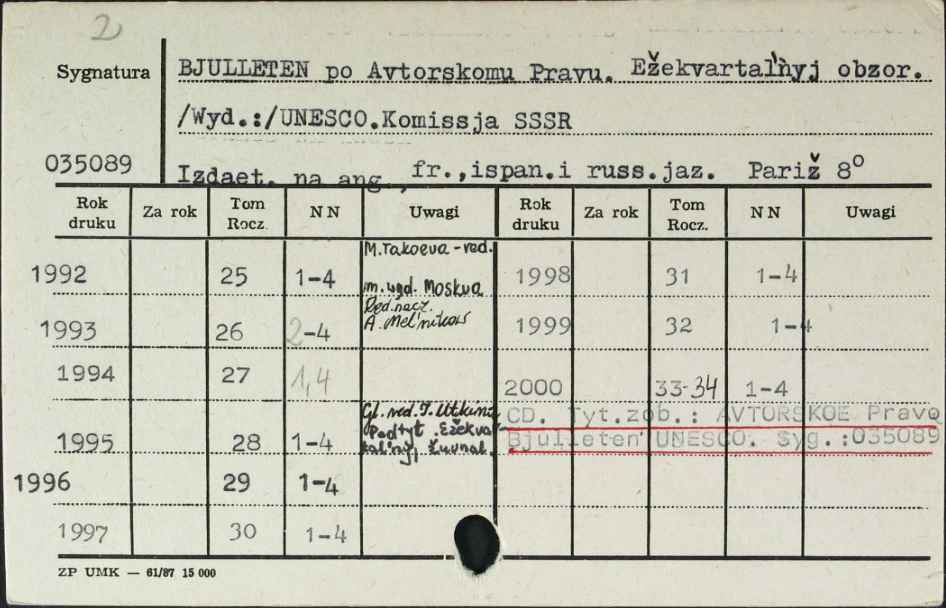 2
Sygnatura
BJULLETEN po Avtorskomu Pravu. Ežekvartal'nyj obzor.
/Wyd.:/UNESCO.Komissja SSSR
035089
Izdaet. na ang., fr.,ispan.i russ.jaz. Pariž 8⁰
Rok druku Za rok Tom Rocz. NN Uwagi Rok druku Za rok Tom Rocz. NN Uwagi
1992 25 1-4 M.Takoeva - red. 1998 31 1-4
m. wyd. Moskva
1993 26 2-4 Red. nacz. 1999 32 1-4
A. Mel'nikov
1994 27 1,4 2000 33-34 1-4
Gl. red. T. Utkina CD. Tyt.zob.: AVTORSKOE Pravo
1995 28 1-4 Podtyt. Ežekvar Bjulleten' UNESCO. Syg.:035089
tal'nyj žurnal.
1996 29 1-4
1997 30 1-4
ZP UMK — 61/87 15 000